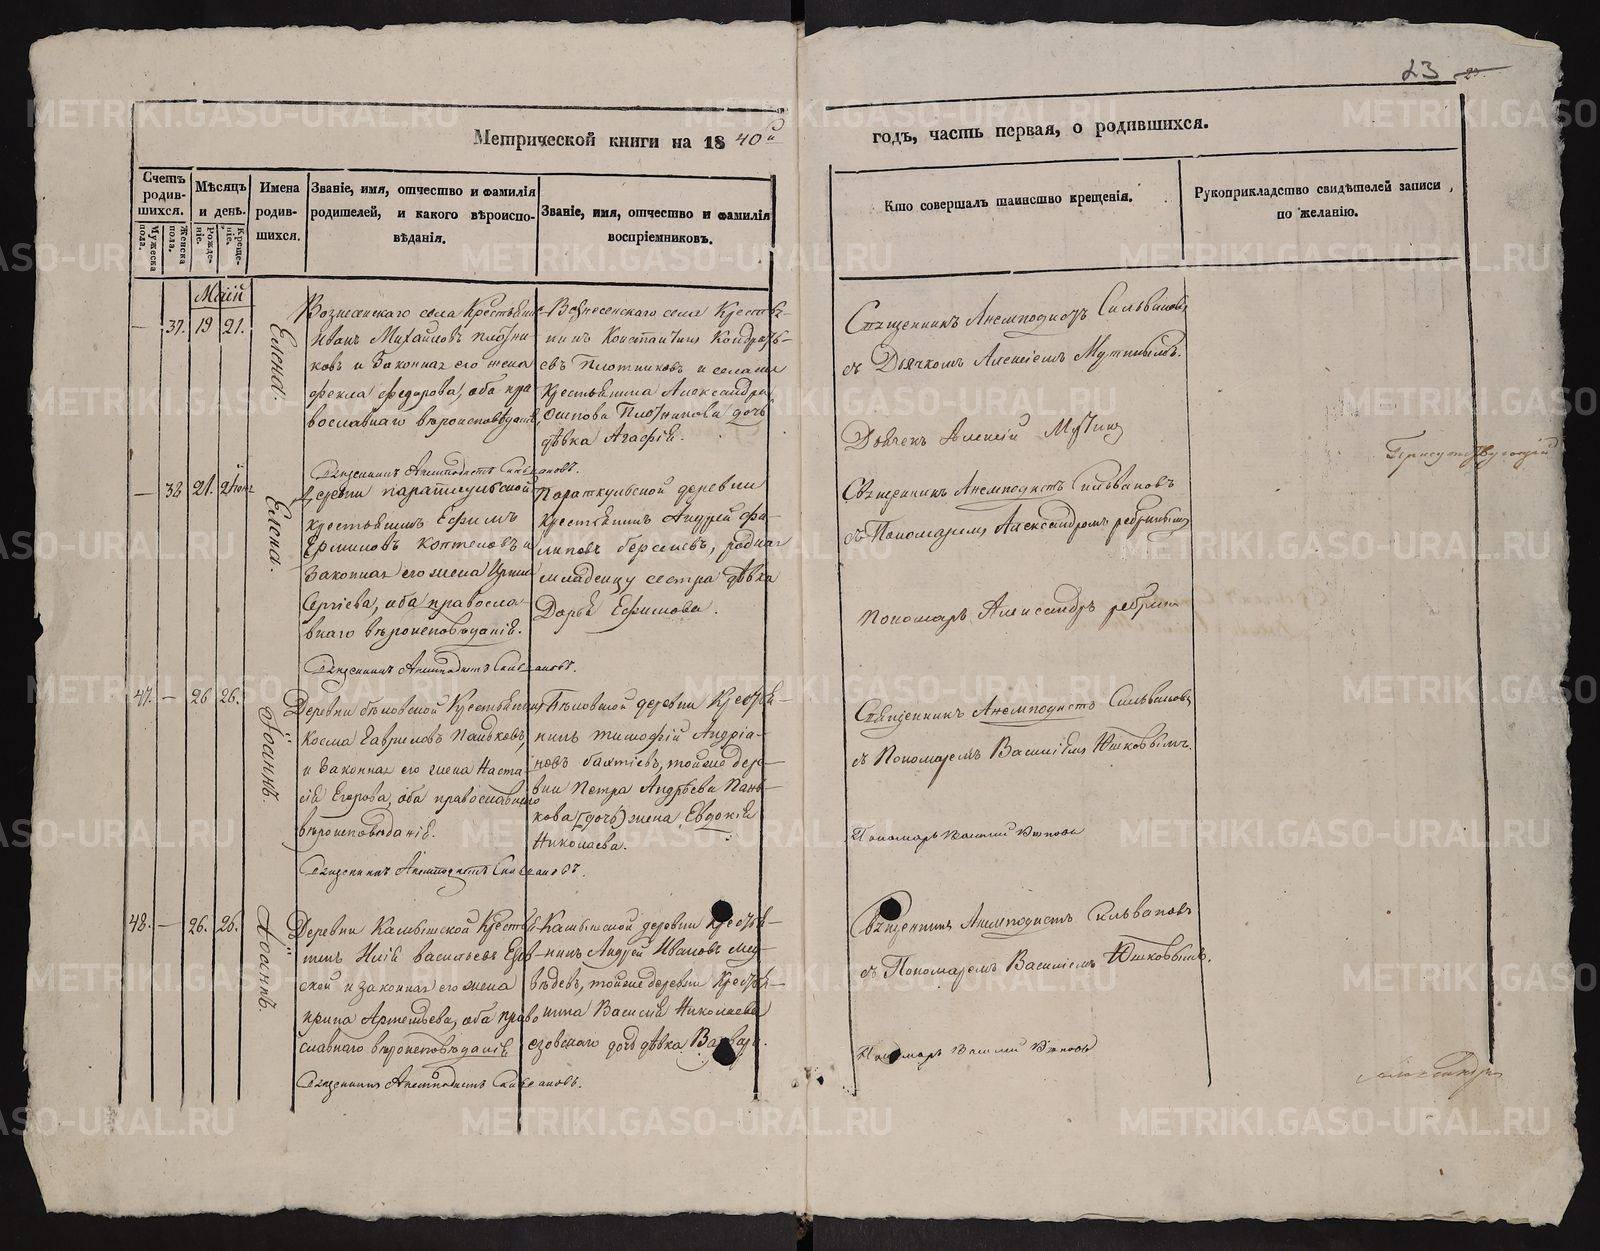 23 23.
Метрической книги на 1840й
годъ, часть первая, о родившихся.
Счетъ родив-шихся.
Мужеска пола.
Женска пола.
Мѣсяцъ и день.
Рожде-нія.
Креще-нія.
Имена родив-шихся.
Званіе, имя, отчество и фамилія родителей, и какого вѣроиспо-вѣданія.
Званіе, имя, отчество и фамилія воспріемниковъ.
Кто совершалъ таинство крещенія.
Рукоприкладство свидѣтелей записи по желанію.
Маій
— 37. 19 21.
Елена.
Вознесенскаго села Крестьянинъ
Иванъ Михайловъ Плотни-
ковъ и Законная его жена
Фекла Федорова, оба пра-
вославнаго вѣроисповѣданія
Священникъ Анемподистъ Сильвановъ.
Вознесенскаго села Крестья-
нинъ Константинъ Кондрать-
евъ Плотниковъ и села
Крестьянина Александра
Осипова Плотникова дочь
дѣвка Агафія.
Священникъ Анемподистъ Сильвановъ
съ Дьячкомъ Алексіемъ Мутинымъ.
Дьячекъ Алексій Мутинъ
— 38 21. 2
Елена.
Деревни Параткульской
Крестьянинъ Ефимъ
Ермиловъ Коптеловъ и
Законная его жена Ирина
Сергіева, оба правосла-
внаго вѣроисповѣданія.
Священникъ Анемподистъ Сильвановъ.
Параткульской деревни
Крестьянинъ Андрей Фи-
липовъ Берсеневъ, родная
младенцу сестра дѣвка
Дарья Ефимова.
Священникъ Анемподистъ Сильвановъ
съ Пономаремъ Александромъ Ребринымъ
Пономарь Александръ Ребринъ
47. — 26 26.
Іоаннъ.
Деревни Бѣловской Крестьянинъ
Косма Гавриловъ Паньковъ,
и Законная его жена Наста-
сія Егорова, оба православнаго
вѣроисповѣданія.
Священникъ Анемподистъ Сильвановъ.
Бѣловской деревни Крестья-
нинъ Тимофій Андріа-
новъ Бахтіевъ, тойже дере-
вни Петра Андреева Пань-
кова (дочь) жена Евдокія
Николаева.
Священникъ Анемподистъ Сильвановъ
съ Пономаремъ Василіемъ Юшковымъ.
Пономарь Василій Юшковъ
48. — 26. 26.
Іоаннъ.
Деревни Камышской Крестья-
нинъ Илія Васильевъ Езов-
ской и законная его жена
Ирина Артемьева, оба право
славнаго вѣроисповѣданія
Священникъ Анемподистъ Сильвановъ.
Камышской деревни Крестья-
нинъ Андрей Ивановъ Ме-
дведевъ, тойже деревни Крестья-
нина Василія Николаева
Езовскаго дочь дѣвка Варвара.
Священникъ Анемподистъ Сильвановъ
съ Пономаремъ Василіемъ Юшковымъ.
Пономарь Василій Юшковъ
METRIKI.GASO-URAL.RU